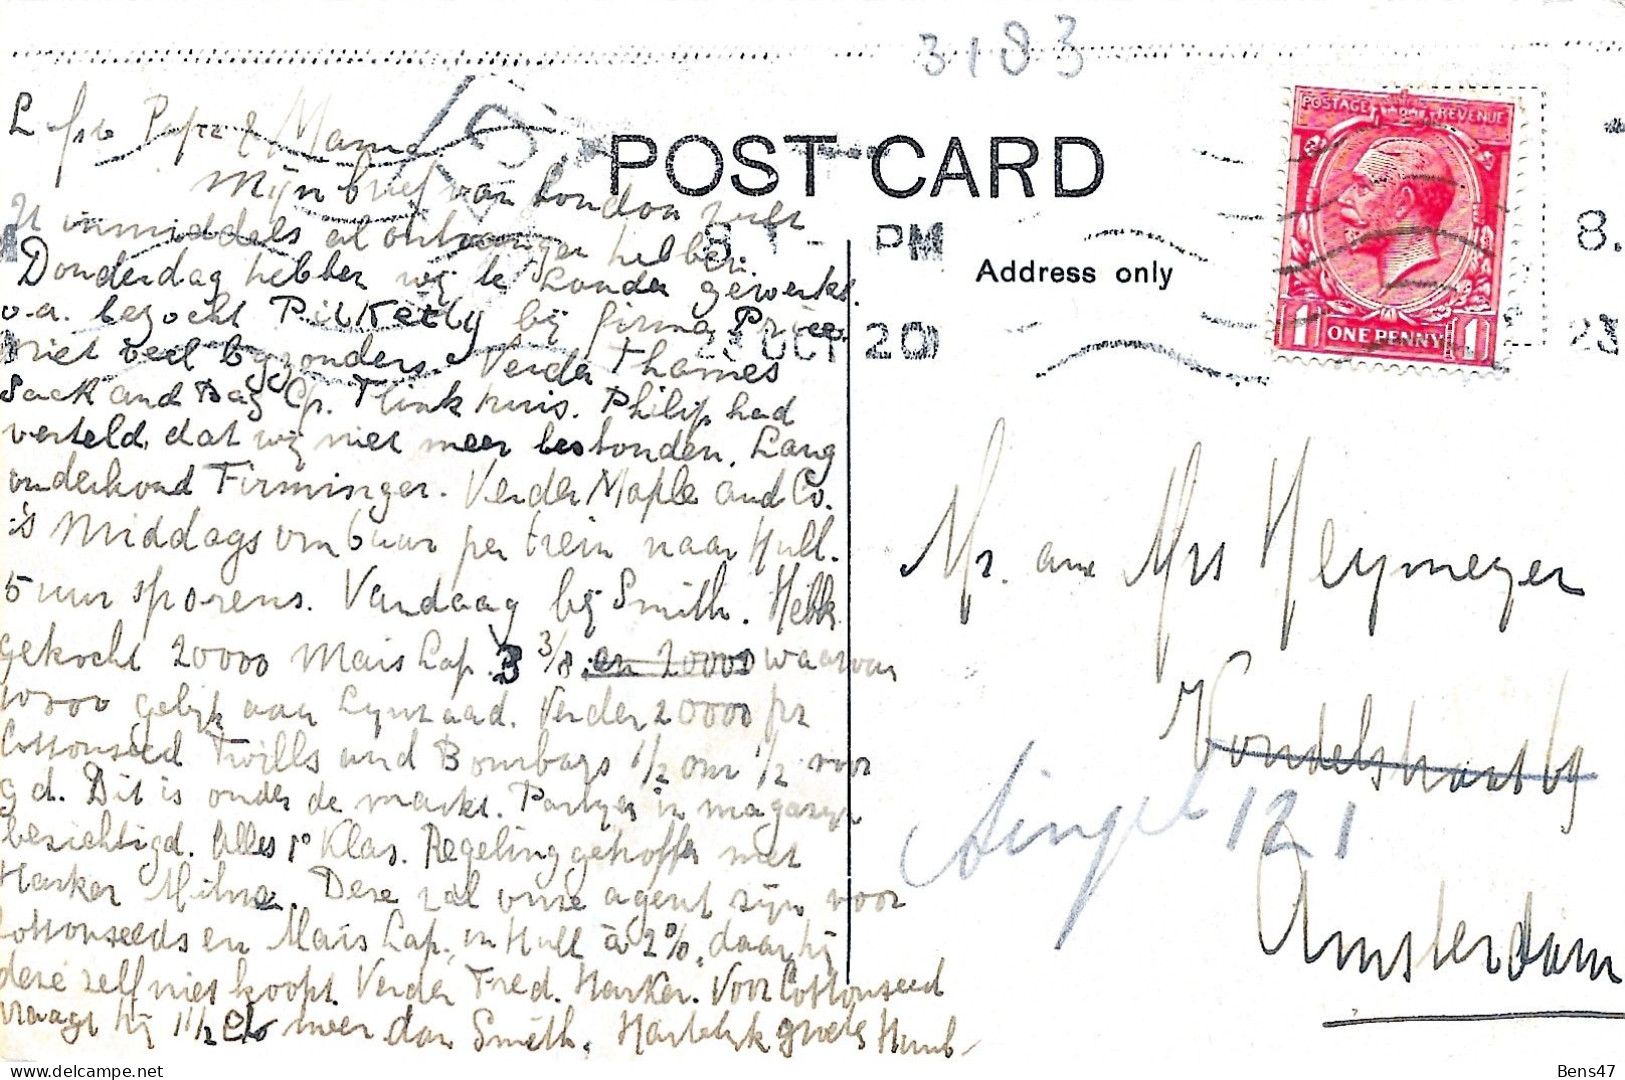 3183
POST CARD
Address only
POSTAGE REVENUE
1 ONE PENNY 1
8 15 PM
23 OCT 20
8.
23
L Papa & Mama
Mijn brief van London zult
U inmiddels al ontvangen hebben.
Donderdag hebben wij te Londen gewerkt.
o.a. bezocht bij firma Price
niet veel byzonders. Verder Thames
Sack and Bag Cp. Flink huis. Philip had
verteld, dat wij niet meer bestonden. Lang
onderhoud Firminger. Verder Maple and Co.
's Middags om 6 uur per trein naar Hull.
5 uur sporens. Vandaag bij Smith. Heb
gekocht 20000 Mais Lap. 3 3/8 en 20000 waarvan
10000 gelijk aan Lynzaad. Verder 20000 pr
Cottonseed Twills and Bombays 1/2 om 1/2 voor
9 d. Dit is onder de markt. Partijen in magazijn
bezichtigd. Alles 1e Klas. Regeling getroffen met
Harker Milne. Deze zal onze agent zijn voor
Cottonseeds en Mais Lap. in Hull à 2%, daar hij
deze zelf niet koopt. Verder Fred. Harker. Voor Cottonseed
vraagt hij 1 1/2 meer dan Smith. Hartelijk groets Humb
Mr. and Mrs Heymeyer
Vondelstraat
Singel 121
Amsterdam
Bens47